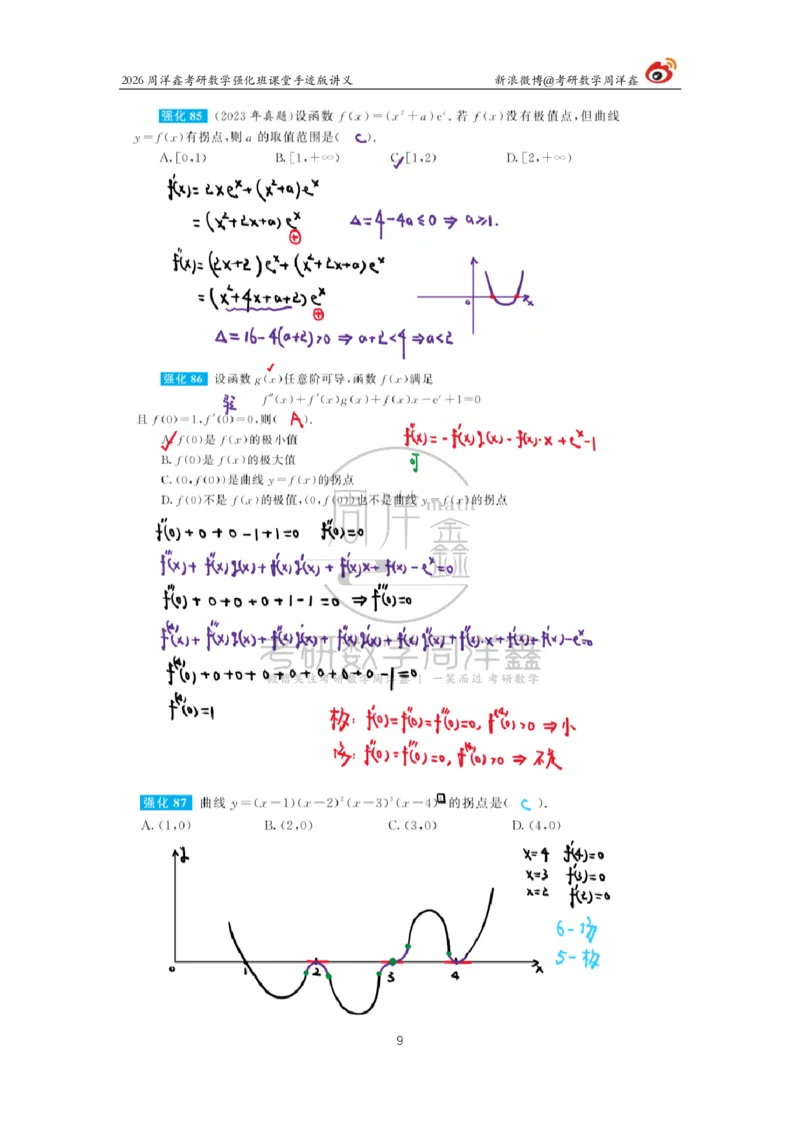 2026周洋鑫考研数学强化班课堂手迹版讲义 新浪微博@考研数学周洋鑫
强化 85 (2023 年真题)设函数 f(x)=(x²+a)eˣ. 若 f(x)没有极值点,但曲线
y=f(x)有拐点,则 a 的取值范围是( C ).
A.[0,1) B.[1,+∞) C.[1,2) D.[2,+∞)
f'(x)=2xeˣ+(x²+a)eˣ
=(x²+2x+a)eˣ Δ=4-4a≤0⇒a≥1.
⊕
f''(x)=(2x+2)eˣ+(x²+2x+a)eˣ
=(x²+4x+a+2)eˣ
⊕
o x
Δ=16-4(a+2)>0⇒a+2<4⇒a<2
强化 86 设函数 g(x)任意阶可导,函数 f(x)满足
f''(x)+f'(x)g(x)+f(x)x-eˣ+1=0
且 f(0)=1,f'(0)=0,则( A ).
A. f(0)是 f(x)的极小值
f''(x)=-f'(x)g(x)-f(x)·x+eˣ-1
B. f(0)是 f(x)的极大值
可
C. (0,f(0))是曲线 y=f(x)的拐点
D. f(0)不是 f(x)的极值,(0,f(0))也不是曲线 y=f(x)的拐点
f''(0)+0+0-1+1=0 f''(0)=0
f'''(x)+f''(x)g(x)+f'(x)g'(x)+f'(x)x+f(x)-eˣ=0
f'''(0)+0+0+0+1-1=0⇒f'''(0)=0
f⁽⁴⁾(x)+f'''(x)g(x)+f''(x)g'(x)+f''(x)g'(x)+f'(x)g''(x)+f''(x)·x+f'(x)+f'(x)-eˣ=0
f⁽⁴⁾(0)+0+0+0+0+0+0+0-1=0
f⁽⁴⁾(0)=1
极: f'(0)=f''(0)=f'''(0)=0, f⁽⁴⁾(0)>0⇒小
f''(0)=f'''(0)=0, f⁽⁴⁾(0)>0⇒不是
周洋鑫
math
考研数学周洋鑫
微博关注考研数学周洋鑫 | 一笑而过 考研数学
强化 87 曲线 y=(x-1)(x-2)²(x-3)³(x-4)⁴的拐点是( C ).
A. (1,0) B. (2,0) C. (3,0) D. (4,0)
y
x=4 f'(4)=0
x=3 f'(3)=0
x=2 f'(2)=0
5-极
0 1 2 3 4 x
9